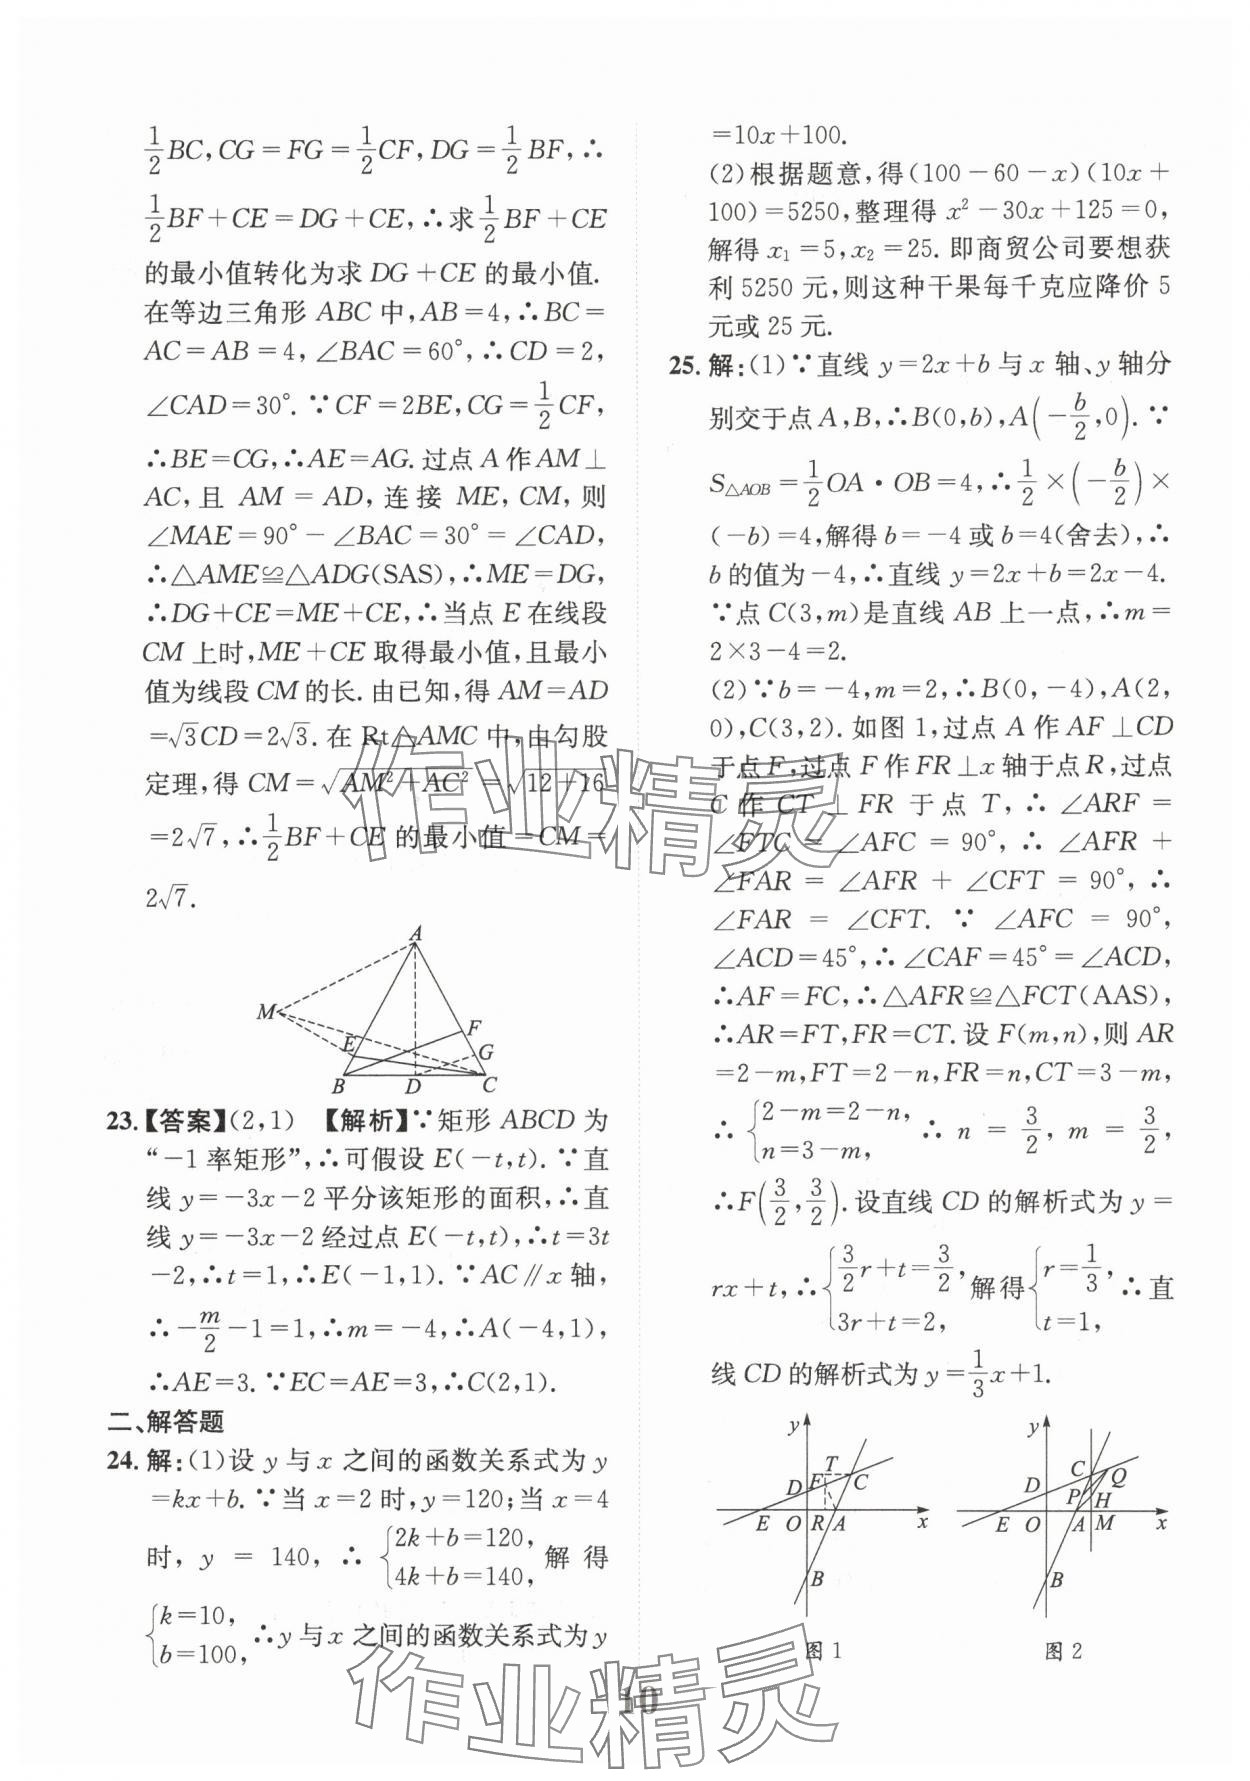 1/2 BC,CG=FG=1/2 CF,DG=1/2 BF,∴
1/2 BF+CE=DG+CE,∴求1/2 BF+CE
的最小值转化为求 DG+CE 的最小值.
在等边三角形 ABC 中,AB=4,∴BC=
AC=AB=4,∠BAC=60°,∴CD=2,
∠CAD=30°.∵CF=2BE,CG=1/2 CF,
∴BE=CG,∴AE=AG.过点 A 作 AM⊥
AC,且 AM=AD,连接 ME,CM,则
∠MAE=90°-∠BAC=30°=∠CAD,
∴△AME≌△ADG(SAS),∴ME=DG,
∴DG+CE=ME+CE,∴当点 E 在线段
CM 上时,ME+CE 取得最小值,且最小
值为线段 CM 的长.由已知,得 AM=AD
=√3CD=2√3.在 Rt△AMC 中,由勾股
定理,得 CM=√(AM²+AC²)=√(12+16)
=2√7,∴1/2 BF+CE 的最小值=CM=
2√7.
A
M
F
E
G
B
D
C
23.【答案】(2,1) 【解析】∵矩形 ABCD 为
“-1 率矩形”,∴可假设 E(-t,t).∵直
线 y=-3x-2 平分该矩形的面积,∴直
线 y=-3x-2 经过点 E(-t,t),∴t=3t
-2,∴t=1,∴E(-1,1).∵AC∥x 轴,
∴-m/2-1=1,∴m=-4,∴A(-4,1),
∴AE=3.∵EC=AE=3,∴C(2,1).
二、解答题
24.解:(1)设 y 与 x 之间的函数关系式为 y
=kx+b.∵当 x=2 时,y=120;当 x=4
时,y=140,∴{2k+b=120, 4k+b=140,解得
{k=10, b=100,∴y 与 x 之间的函数关系式为 y
=10x+100.
(2)根据题意,得(100-60-x)(10x+
100)=5250,整理得 x²-30x+125=0,
解得 x₁=5,x₂=25.即商贸公司要想获
利 5250 元,则这种干果每千克应降价 5
元或 25 元.
25.解:(1)∵直线 y=2x+b 与 x 轴、y 轴分
别交于点 A,B,∴B(0,b),A(-b/2,0).∵
S△AOB=1/2 OA·OB=4,∴1/2×(-b/2)×
(-b)=4,解得 b=-4 或 b=4(舍去),∴
b 的值为-4,∴直线 y=2x+b=2x-4.
∵点 C(3,m)是直线 AB 上一点,∴m=
2×3-4=2.
(2)∵b=-4,m=2,∴B(0,-4),A(2,
0),C(3,2).如图 1,过点 A 作 AF⊥CD
于点 F,过点 F 作 FR⊥x 轴于点 R,过点
C 作 CT⊥FR 于点 T,∴∠ARF=
∠FTC=∠AFC=90°,∴∠AFR+
∠FAR=∠AFR+∠CFT=90°,∴
∠FAR=∠CFT.∵∠AFC=90°,
∠ACD=45°,∴∠CAF=45°=∠ACD,
∴AF=FC,∴△AFR≌△FCT(AAS),
∴AR=FT,FR=CT.设 F(m,n),则 AR
=2-m,FT=2-n,FR=n,CT=3-m,
∴{2-m=2-n, n=3-m,∴n=3/2,m=3/2,
∴F(3/2,3/2).设直线 CD 的解析式为 y=
rx+t,∴{3/2 r+t=3/2, 3r+t=2,解得{r=1/3, t=1,∴直
线 CD 的解析式为 y=1/3 x+1.
y
T
D F C
E O R A x
B
图 1
y
C Q
D P H
E O A M x
B
图 2
10
作业精灵
作业精灵